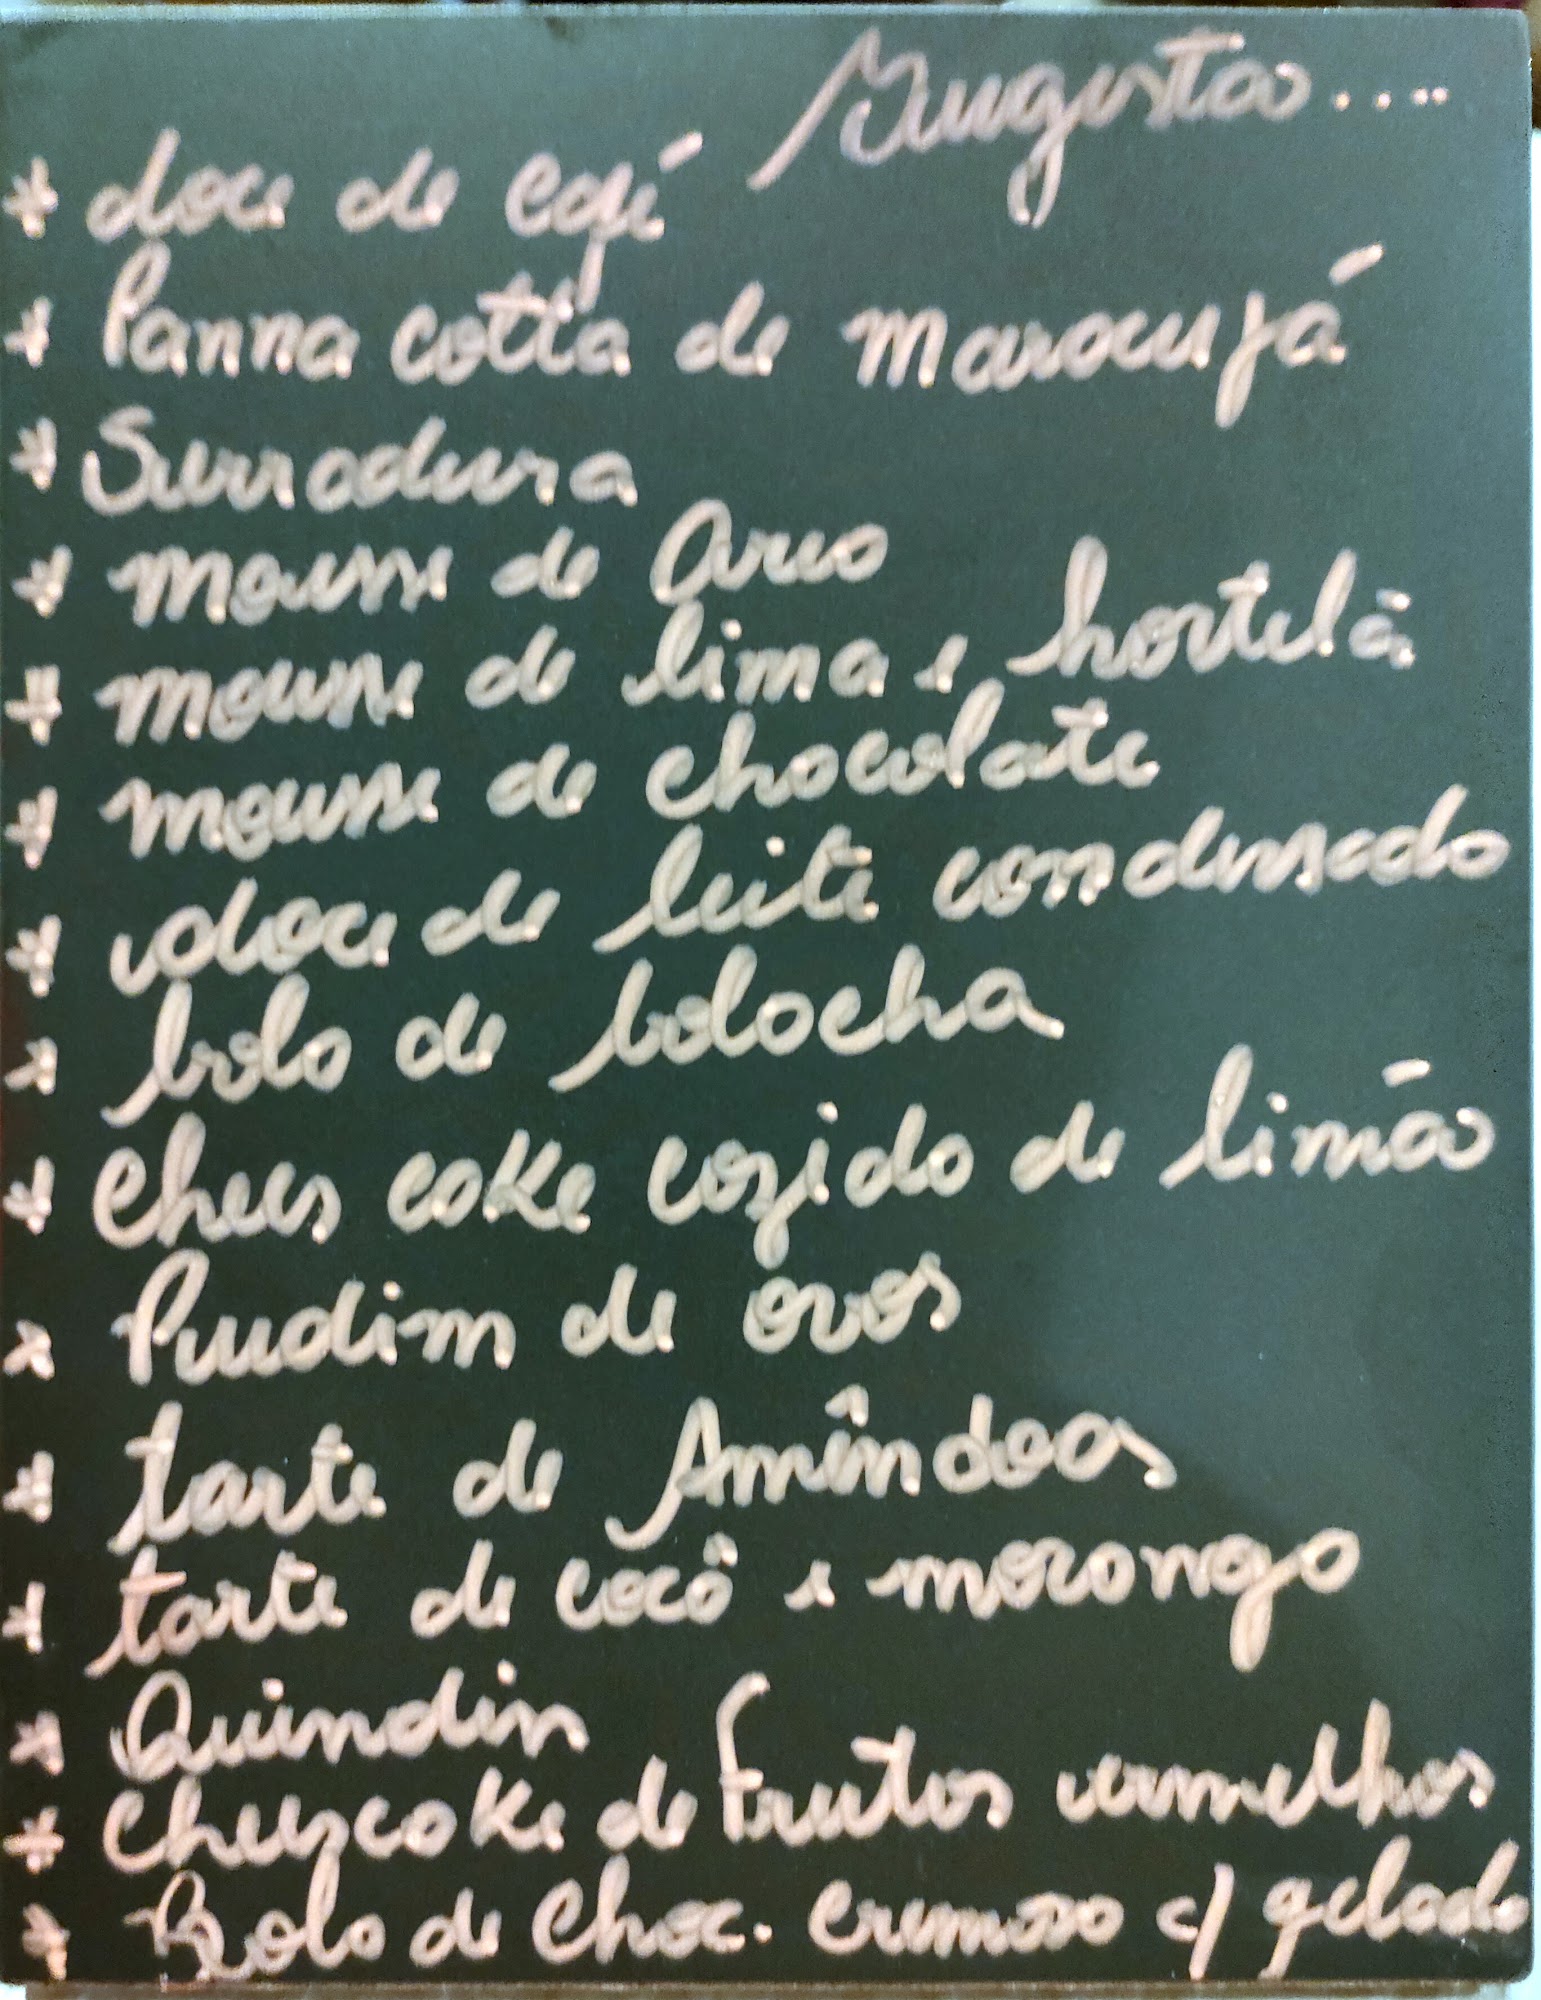 Sugestão....
* doce de café
* Panna cotta de maracujá
* Serradura
* mousse de Oreo
* mousse de lima e hortelã
* mousse de chocolate
* doce de leite condensado
* bolo de bolacha
* chees cake cozido de limão
* Pudim de ovos
* tarte de Amêndoas
* tarte de cocô e morango
* Quindin
* cheescake de Frutos vermelhos
* Bolo de Choc. cremoso c/ gelado